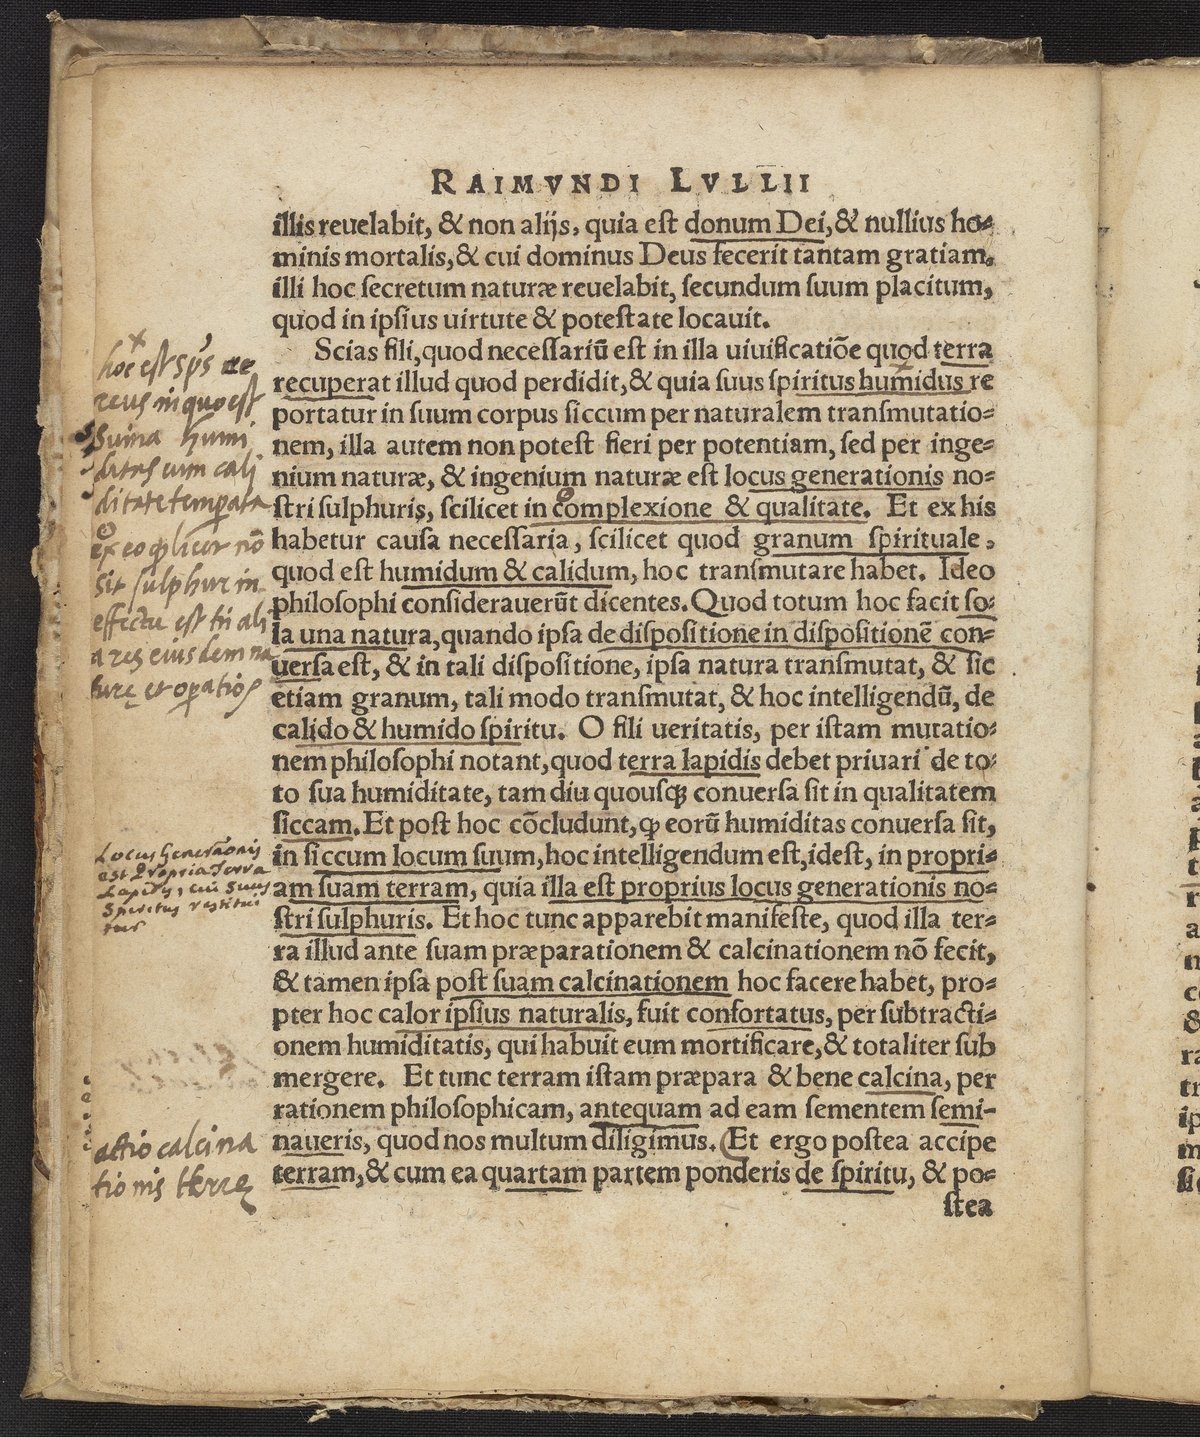 RAIMVNDI LVLLII
illis reuelabit, & non alijs, quia est donum Dei, & nullius ho-
minis mortalis, & cui dominus Deus fecerit tantam gratiam,
illi hoc secretum naturæ reuelabit, secundum suum placitum,
quod in ipsius uirtute & potestate locauit.
Scias fili, quod necessariũ est in illa uiuificatiõe quod terra
recuperat illud quod perdidit, & quia suus spiritus humidus re
portatur in suum corpus siccum per naturalem transmutatio-
nem, illa autem non potest fieri per potentiam, sed per inge-
nium naturæ, & ingenium naturæ est locus generationis no-
stri sulphuris, scilicet in complexione & qualitate. Et ex his
habetur causa necessaria, scilicet quod granum spirituale,
quod est humidum & calidum, hoc transmutare habet. Ideo
philosophi considerauerũt dicentes. Quod totum hoc facit so-
la una natura, quando ipsa de dispositione in dispositionẽ con-
uersa est, & in tali dispositione, ipsa natura transmutat, & sic
etiam granum, tali modo transmutat, & hoc intelligendũ, de
calido & humido spiritu. O fili ueritatis, per istam mutatio-
nem philosophi notant, quod terra lapidis debet priuari de to-
to sua humiditate, tam diu quousq; conuersa sit in qualitatem
siccam. Et post hoc cõcludunt, ꝙ eorũ humiditas conuersa sit,
in siccum locum suum, hoc intelligendum est, idest, in propri-
am suam terram, quia illa est proprius locus generationis no-
stri sulphuris. Et hoc tunc apparebit manifeste, quod illa ter-
ra illud ante suam præparationem & calcinationem nõ fecit,
& tamen ipsa post suam calcinationem hoc facere habet, pro-
pter hoc calor ipsius naturalis, fuit confortatus, per subtracti-
onem humiditatis, qui habuit eum mortificare, & totaliter sub
mergere. Et tunc terram istam præpara & bene calcina, per
rationem philosophicam, antequam ad eam sementem semi-
naueris, quod nos multum diligimus. Et ergo postea accipe
terram, & cum ea quartam partem ponderis de spiritu, & po-
stea
hoc est sp̃s ae
reus in quo est
Suma humi
ditas cum cali
ditate temperata
ex eo licet nõ
sit sulphur in
effectu est tñ ali
a res eiusdem na
turę et operatiõ
Locus Generãonis
est Propria Terra
Lapidis, cui suus
Spiritus restitui
tur
actio calcina
tionis terrę